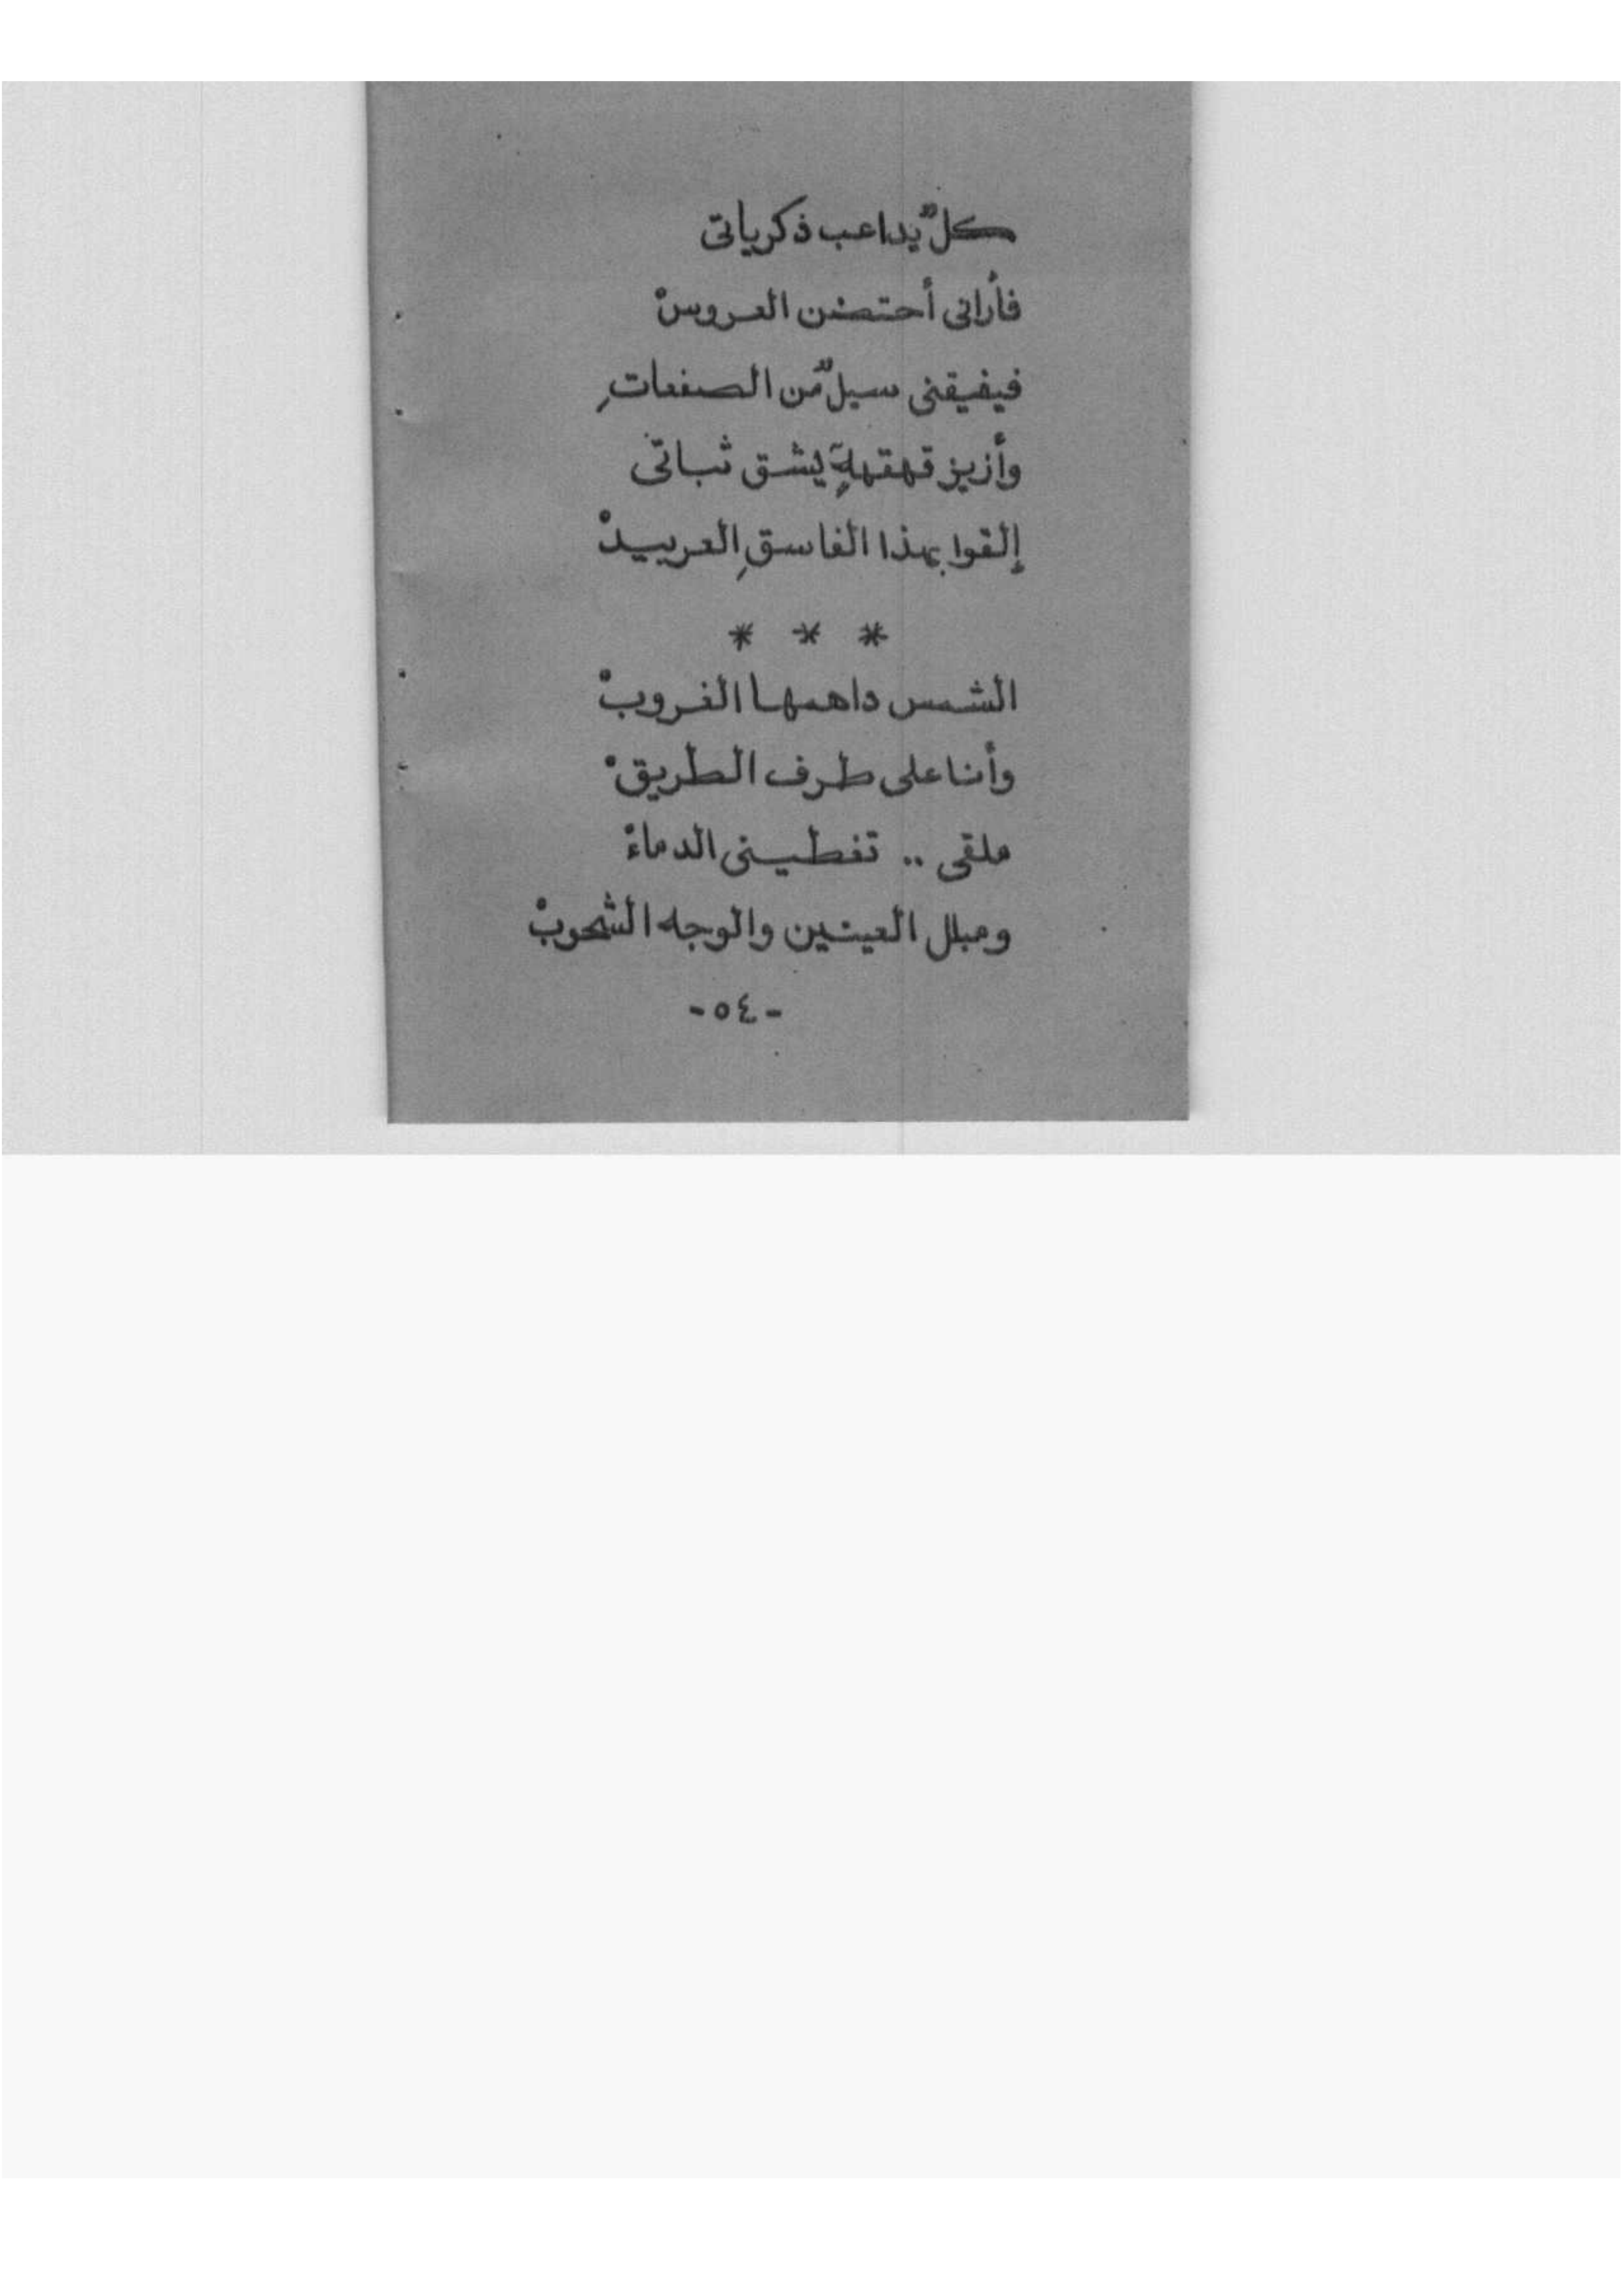 كلٌ يداعب ذكرياتى
فأرانى أحتضن العروسْ
فيفيقنى سيلٌ من الصفعاتِ
وأزيز قهقهةٍ يشق ثباتى
إلقوا بهذا الفاسقِ العربيدْ
* * *
الشمس داهمها الغروبْ
وأنا على طرف الطريقْ
ملقى .. تغطينى الدماءْ
ومبلل العينين والوجه الشحوبْ
- ٥٤ -